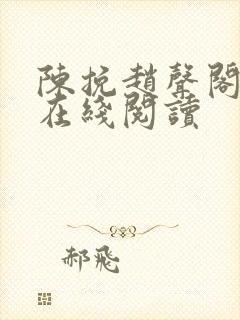 陳挽趙聲閣
在綫閱讀
郝飛